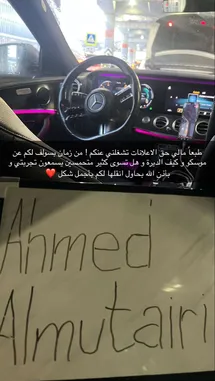 طبعاً مالي حق الاعلانات تشغلني عنكم ! من زمان بسولف لكم عن
موسكو و كيف الديرة و هل تسوى كثير متحمسين يسمعون تجربتي و
بإذن الله بحاول انقلها لكم بأجمل شكل ❤️
Ahmed
Almutairi